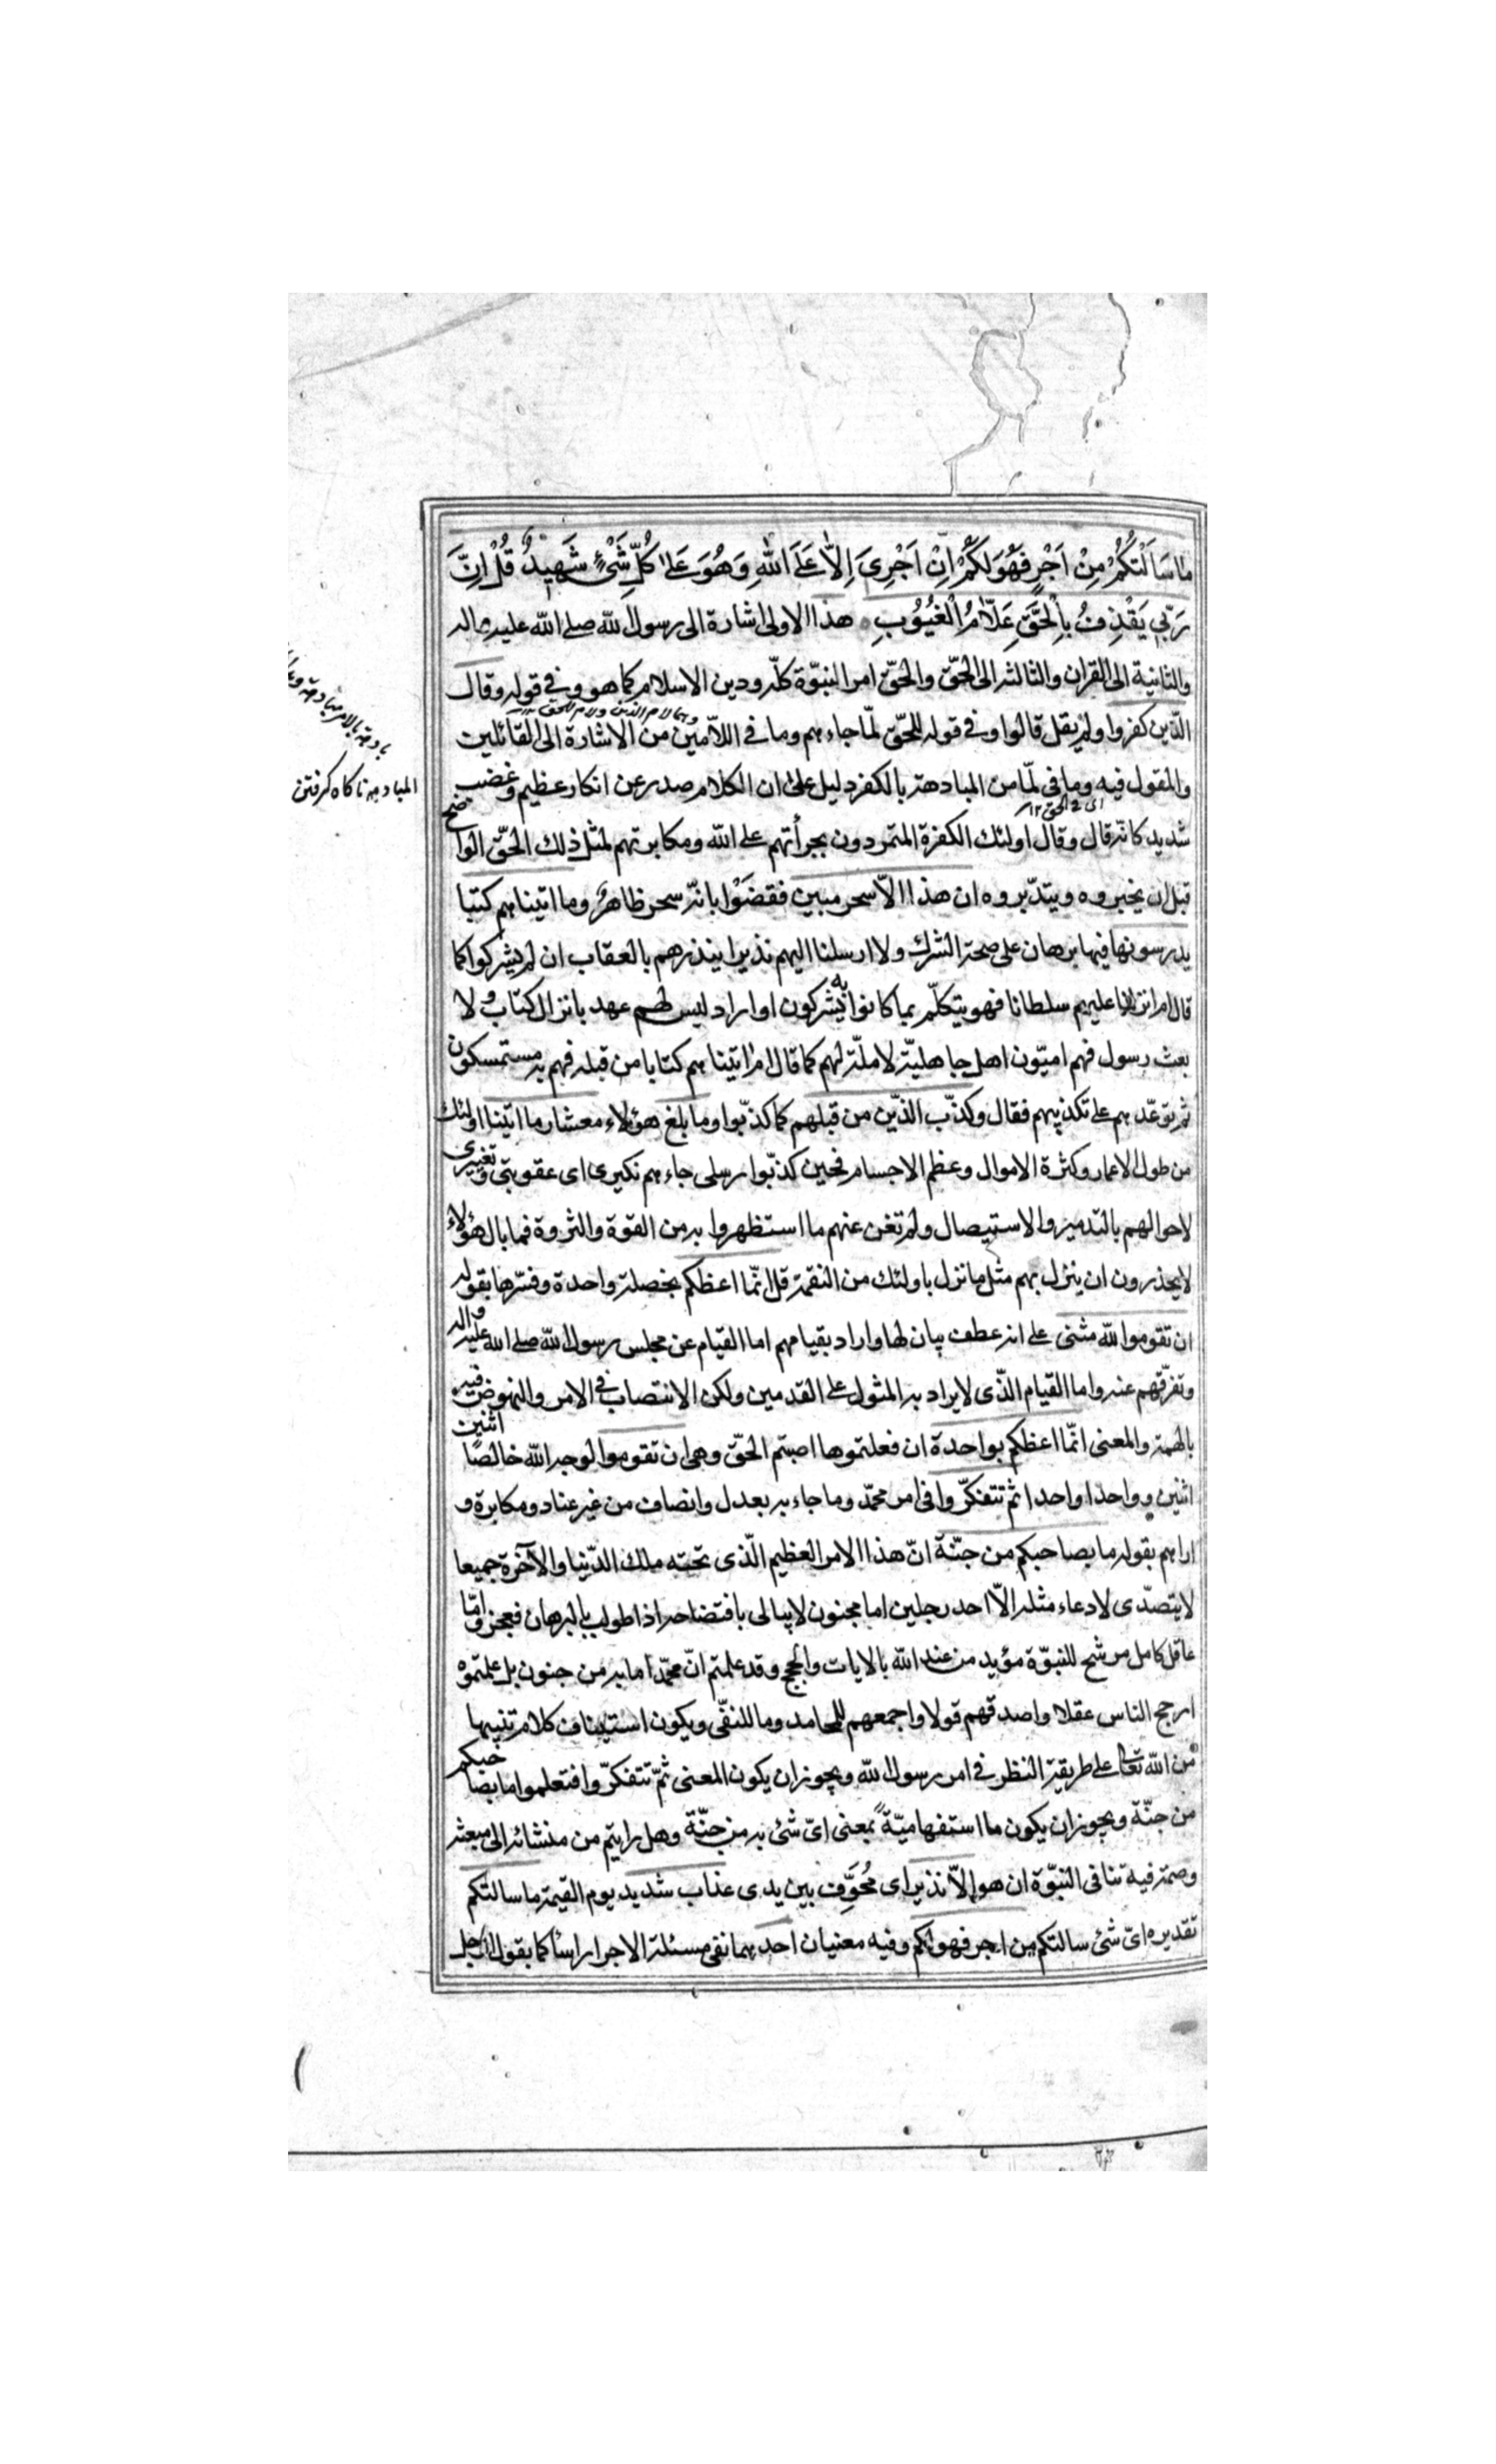 مَا سَاَلْتُكُمْ مِنْ اَجْرٍ فَهُوَ لَكُمْ اِنْ اَجْرِىَ اِلَّا عَلَى اللّٰهِ وَهُوَ عَلٰى كُلِّ شَىْءٍ شَهِيدٌ قُلْ اِنَّ
رَبّى يَقْذِفُ بِالْحَقِّ عَلَّامُ الْغُيُوبِ هذا الاولى اشارة الى رسول لله صلى الله عليه واله
والثانية الى القران والثالثه الى الحقّ والحقّ امر النبوّة كلّه ودين الاسلام كما هو وفى قوله وقال
وهما لام الذين ولام للحق ١٢
الذّين كفروا ولم يقل قالوا وفى قوله للحقّ لمّا جاءهم وما فى اللاّمين من الاشارة الى القائلين
والمقول فيه وما فى لمّا من المبادهة بالكفر دليل على ان الكلام صدر عن انكار عظيم وغضب
شديد كانّه قال وقال اولئك الكفرة المتمردون بجرأتهم على الله ومكابرتهم لمثل ذلك الحقّ الواضح
قبل ان يخبروه ويتدبّروه ان هذا الاّ سحر مبين فقضَوْا بانّه سحر ظاهر وما اتيناهم كتبا
يدرسونها فيها برهان على صحة الشرك ولا ارسلنا اليهم نذيرا ينذرهم بالعقاب ان لم يشركوا كما
قال ام انزلنا عليهم سلطانا فهو يتكلّم بما كانوا به يشركون او اراد ليس لهم عهد بانزال كتاب ولا
بعث رسول فهم اميّون اهل جاهليّة لا ملّة لهم كما قال ام اتيناهم كتابا من قبله فهم به مستمسكون
ثم توعّدهم على تكذيبهم فقال وكذّب الذّين من قبلهم كما كذّبوا وما بلغ هؤلاء معشار ما اتينا اولئك
من طول الاعمار وكثرة الاموال وعظم الاجسام فحين كذّبوا رسلى جاءهم نكيرى اى عقوبتى وتغييرى
لاحوالهم بالتدمير والاستيصال ولم تغن عنهم ما استظهروا به من القوّة والثروة فما بال هؤلاء
لا يحذرون ان ينزل بهم مثل ما نزل باولئك من النقمة قل انّما اعظكم بخصلة واحدة وفسّرها بقوله
ان تقوموا لله مثنى على انه عطف بيان لها واراد بقيامهم اما القيام عن مجلس رسول لله صلى الله عليه واله
وتفرّقهم عنه واما القيام الذّى لا يراد به المثول على القدمين ولكن الانتصاب فى الامر والنهوض فيه
بالهمة والمعنى انّما اعظكم بواحدة ان فعلتموها اصبتم الحقّ وهى ان تقوموا لوجه الله خالصًا اثنين
اثنين وواحدا واحدا ثم تتفكّروا فى امر محمّد وما جاء به بعدل وانصاف من غير عناد ومكابرة و
اراهم بقوله ما بصاحبكم من جنّة انّ هذا الامر العظيم الّذى تحته ملك الدّنيا والآخرة جميعا
لا يتصدّى لادعاء مثله الاّ احد رجلين اما مجنون لا يبالى بافتضاحه اذا طولب بالبرهان فعجز وامّا
عاقل كامل مرشح للنبوّة مؤيد من عند الله بالايات والحجج وقد علمتم انّ محمّدا ما به من جنون بل علمتموه
ارجح الناس عقلا واصدقهم قولا واجمعهم للمحامد وما للنفى ويكون استيناف كلام تنبيها
من الله تعالى على طريقة النظر فى امر رسول لله ويجوز ان يكون المعنى ثمّ تتفكّروا فتعلموا ما بصاحبكم
من جنّة ويجوز ان يكون ما استفهاميّة بمعنى اىّ شئ به من جنّة وهل رايتم من منشائه الى مبعثه
وصمة فيه تنافى النبوّة ان هو الاّ نذير اى مُخوِّف بين يدى عذاب شديد يوم القيمة ما سالتكم
تقديره اىّ شئ سالتكم من اجر فهو لكم وفيه معنيان احدهما نفى مسئلة الاجر راسًا كما يقول الرجل
اى فى الحق ١٢
المبادهة ناكاه كرفتن